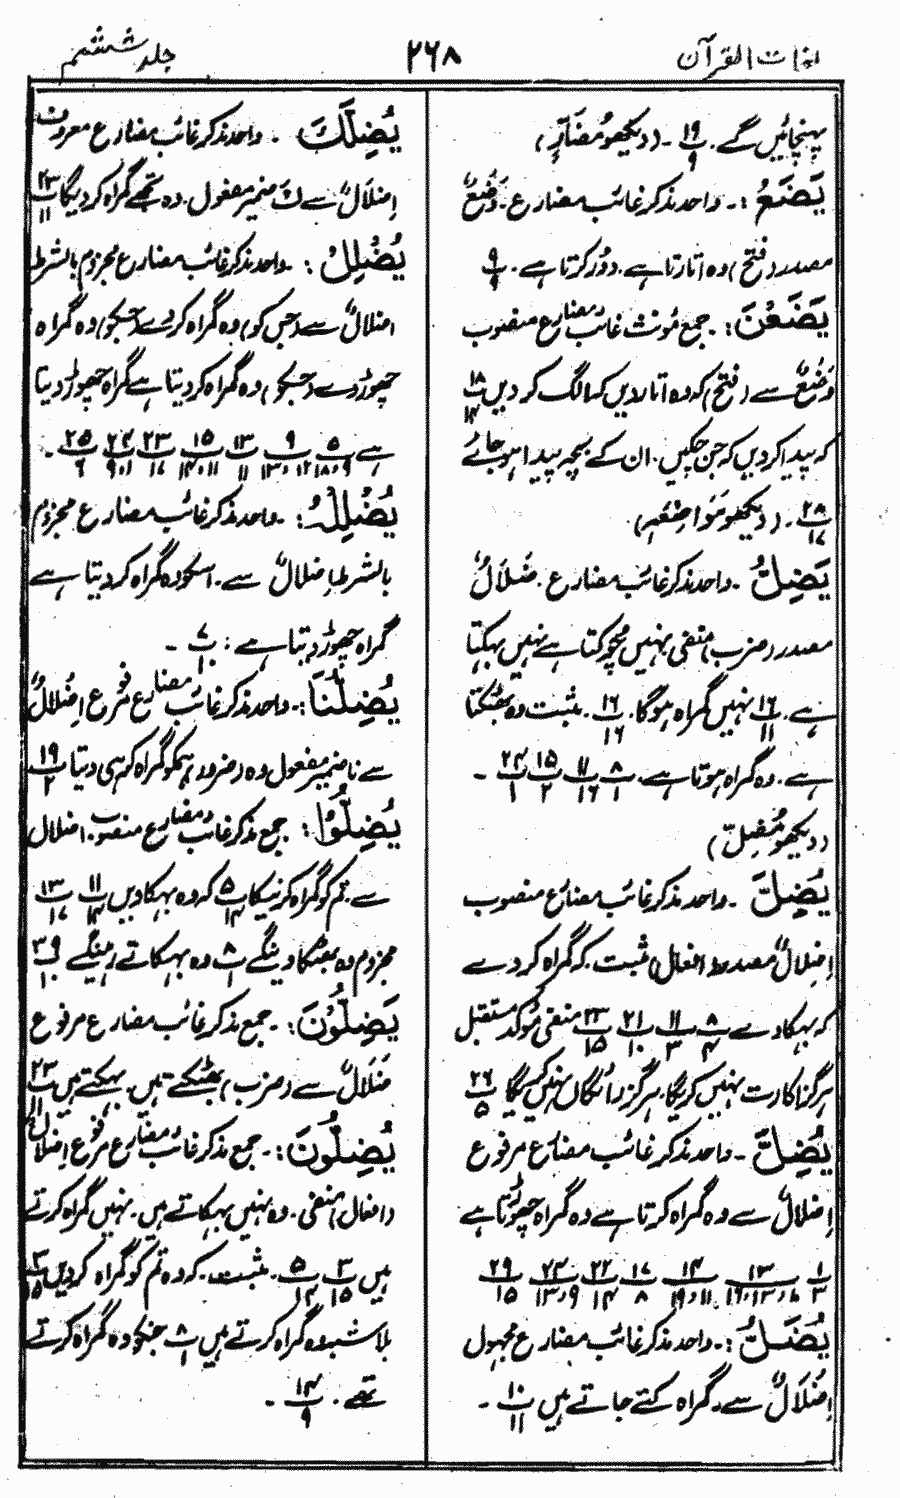 لغات القرآن
۲۶۸
جلد ششم
پہنچائیں گے۔ ۱۹/۹ ۔ (دیکھو مُضَارٍّ)
یَضَعُ :۔ واحد مذکر غائب مضارع۔ وَضْعٌ
مصدر (فتح) وہ اتارتا ہے۔ دور کرتا ہے۔ ۹/۹
یَضَعْنَ :۔ جمع مؤنث غائب مضارع منصوب
وَضْعٌ سے (فتح) کہ وہ اتار دیں کہ الگ کر دیں ۱۸/۱۴
کہ پیدا کر دیں کہ جن چکیں۔ ان کے بچہ پیدا ہو جائے
۲۸/۱۷ ۔ (دیکھو مَوَاضِعِہٖ)
یَضِلُّ :۔ واحد مذکر غائب مضارع۔ ضَلَالٌ
مصدر (ضرب) منفی نہیں چوکتا ہے نہیں بہکتا
ہے۔ ۱۶/۱۱ نہیں گمراہ ہوگا۔ ۱۶/۱۶ ۔ مثبت وہ بھٹکتا
ہے۔ وہ گمراہ ہوتا ہے۔ ۸/۱ ۱۱/۱۶ ۱۵/۲ ۲۴/۱ ۔
(دیکھو مُضِلّ)
یُضِلَّ :۔ واحد مذکر غائب مضارع منصوب
اِضْلَالٌ مصدر (افعال) مثبت۔ کہ گمراہ کر دے
کہ بہکا دے ۸/۴ ۱۱/۳ ۲۱/۱۰ ۲۳/۱۵ منفی مؤکد مستقبل
ہرگز اکارت نہیں کریگا۔ ہرگز رائگاں نہیں کریگا ۲۶/۵
یُضِلُّ :۔ واحد مذکر غائب مضارع مرفوع
اِضْلَالٌ سے وہ گمراہ کرتا ہے وہ گمراہ چھوڑتا ہے
۱/۳ ۱۳/۷،۱۲،۱۹ ۱۴/۱۱،۱۹ ۱۷/۸ ۲۲/۱۴ ۲۴/۹،۱۳ ۲۹/۱۵
یُضَلُّ :۔ واحد مذکر غائب مضارع مجہول
اِضْلَالٌ سے۔ گمراہ کئے جاتے ہیں ۱۰/۱۱ ۔
یُضِلَّكَ ۔ واحد مذکر غائب مضارع معروف
اِضْلَالٌ سے كَ ضمیر مفعول۔ وہ تجھے گمراہ کر دیگا ۲۳/۱۱
یُضْلِلْ :۔ واحد مذکر غائب مضارع مجزوم بالشرط
اضلالٌ سے (جس کو) وہ گمراہ کر دے (جسکو) وہ گمراہ
چھوڑ دے (جسکو) وہ گمراہ کر دیتا ہے گمراہ چھوڑ دیتا
ہے ۵/۹،۱۸ ۹/۱۲،۱۳ ۱۳/۱۱ ۱۵/۱۱،۱۴ ۲۳/۱۷ ۲۴/۱،۹ ۲۵/۶ ۔
یُضْلِلْہُ :۔ واحد مذکر غائب مضارع مجزوم
بالشرط اِضلالٌ سے۔ اسکو وہ گمراہ کر دیتا ہے
گمراہ چھوڑ دیتا ہے : ۷/۱۰ ۔
یُضِلَّنَا :۔ واحد مذکر غائب مضارع مرفوع اِضْلَالٌ
سے نا ضمیر مفعول وہ (ضرور) ہمکو گمراہ کر ہی دیتا ۱۹/۲
یُضِلُّوْا : جمع مذکر غائب مضارع منصوب۔ اضلال
سے۔ تم کو گمراہ کر نیکا ۵/۱۴ کہ وہ بہکا دیں ۱۱/۱۴ ۱۳/۱۷
مجزوم وہ بھٹکا دینگے ۸/۱ وہ بہکاتے رہینگے ۲۹/۱۰
یَضِلُّوْنَ :۔ جمع مذکر غائب مضارع مرفوع
ضَلَالٌ سے (ضرب) بھٹکتے ہیں۔ بہکتے ہیں ۲۳/۱۱
یُضِلُّوْنَ :۔ جمع مذکر غائب مضارع مرفوع اِضلالٌ
(افعال) منفی۔ وہ نہیں بہکاتے ہیں۔ نہیں گمراہ کرتے
ہیں ۳/۱۵ ۵/۱۴ ۔ مثبت۔ کہ وہ تم کو گمراہ کر دیں ۳/۱۵
بلا شبہ وہ گمراہ کرتے ہیں ۸/۱ جنکو وہ گمراہ کرتے
تھے۔ ۱۴/۹ ۔